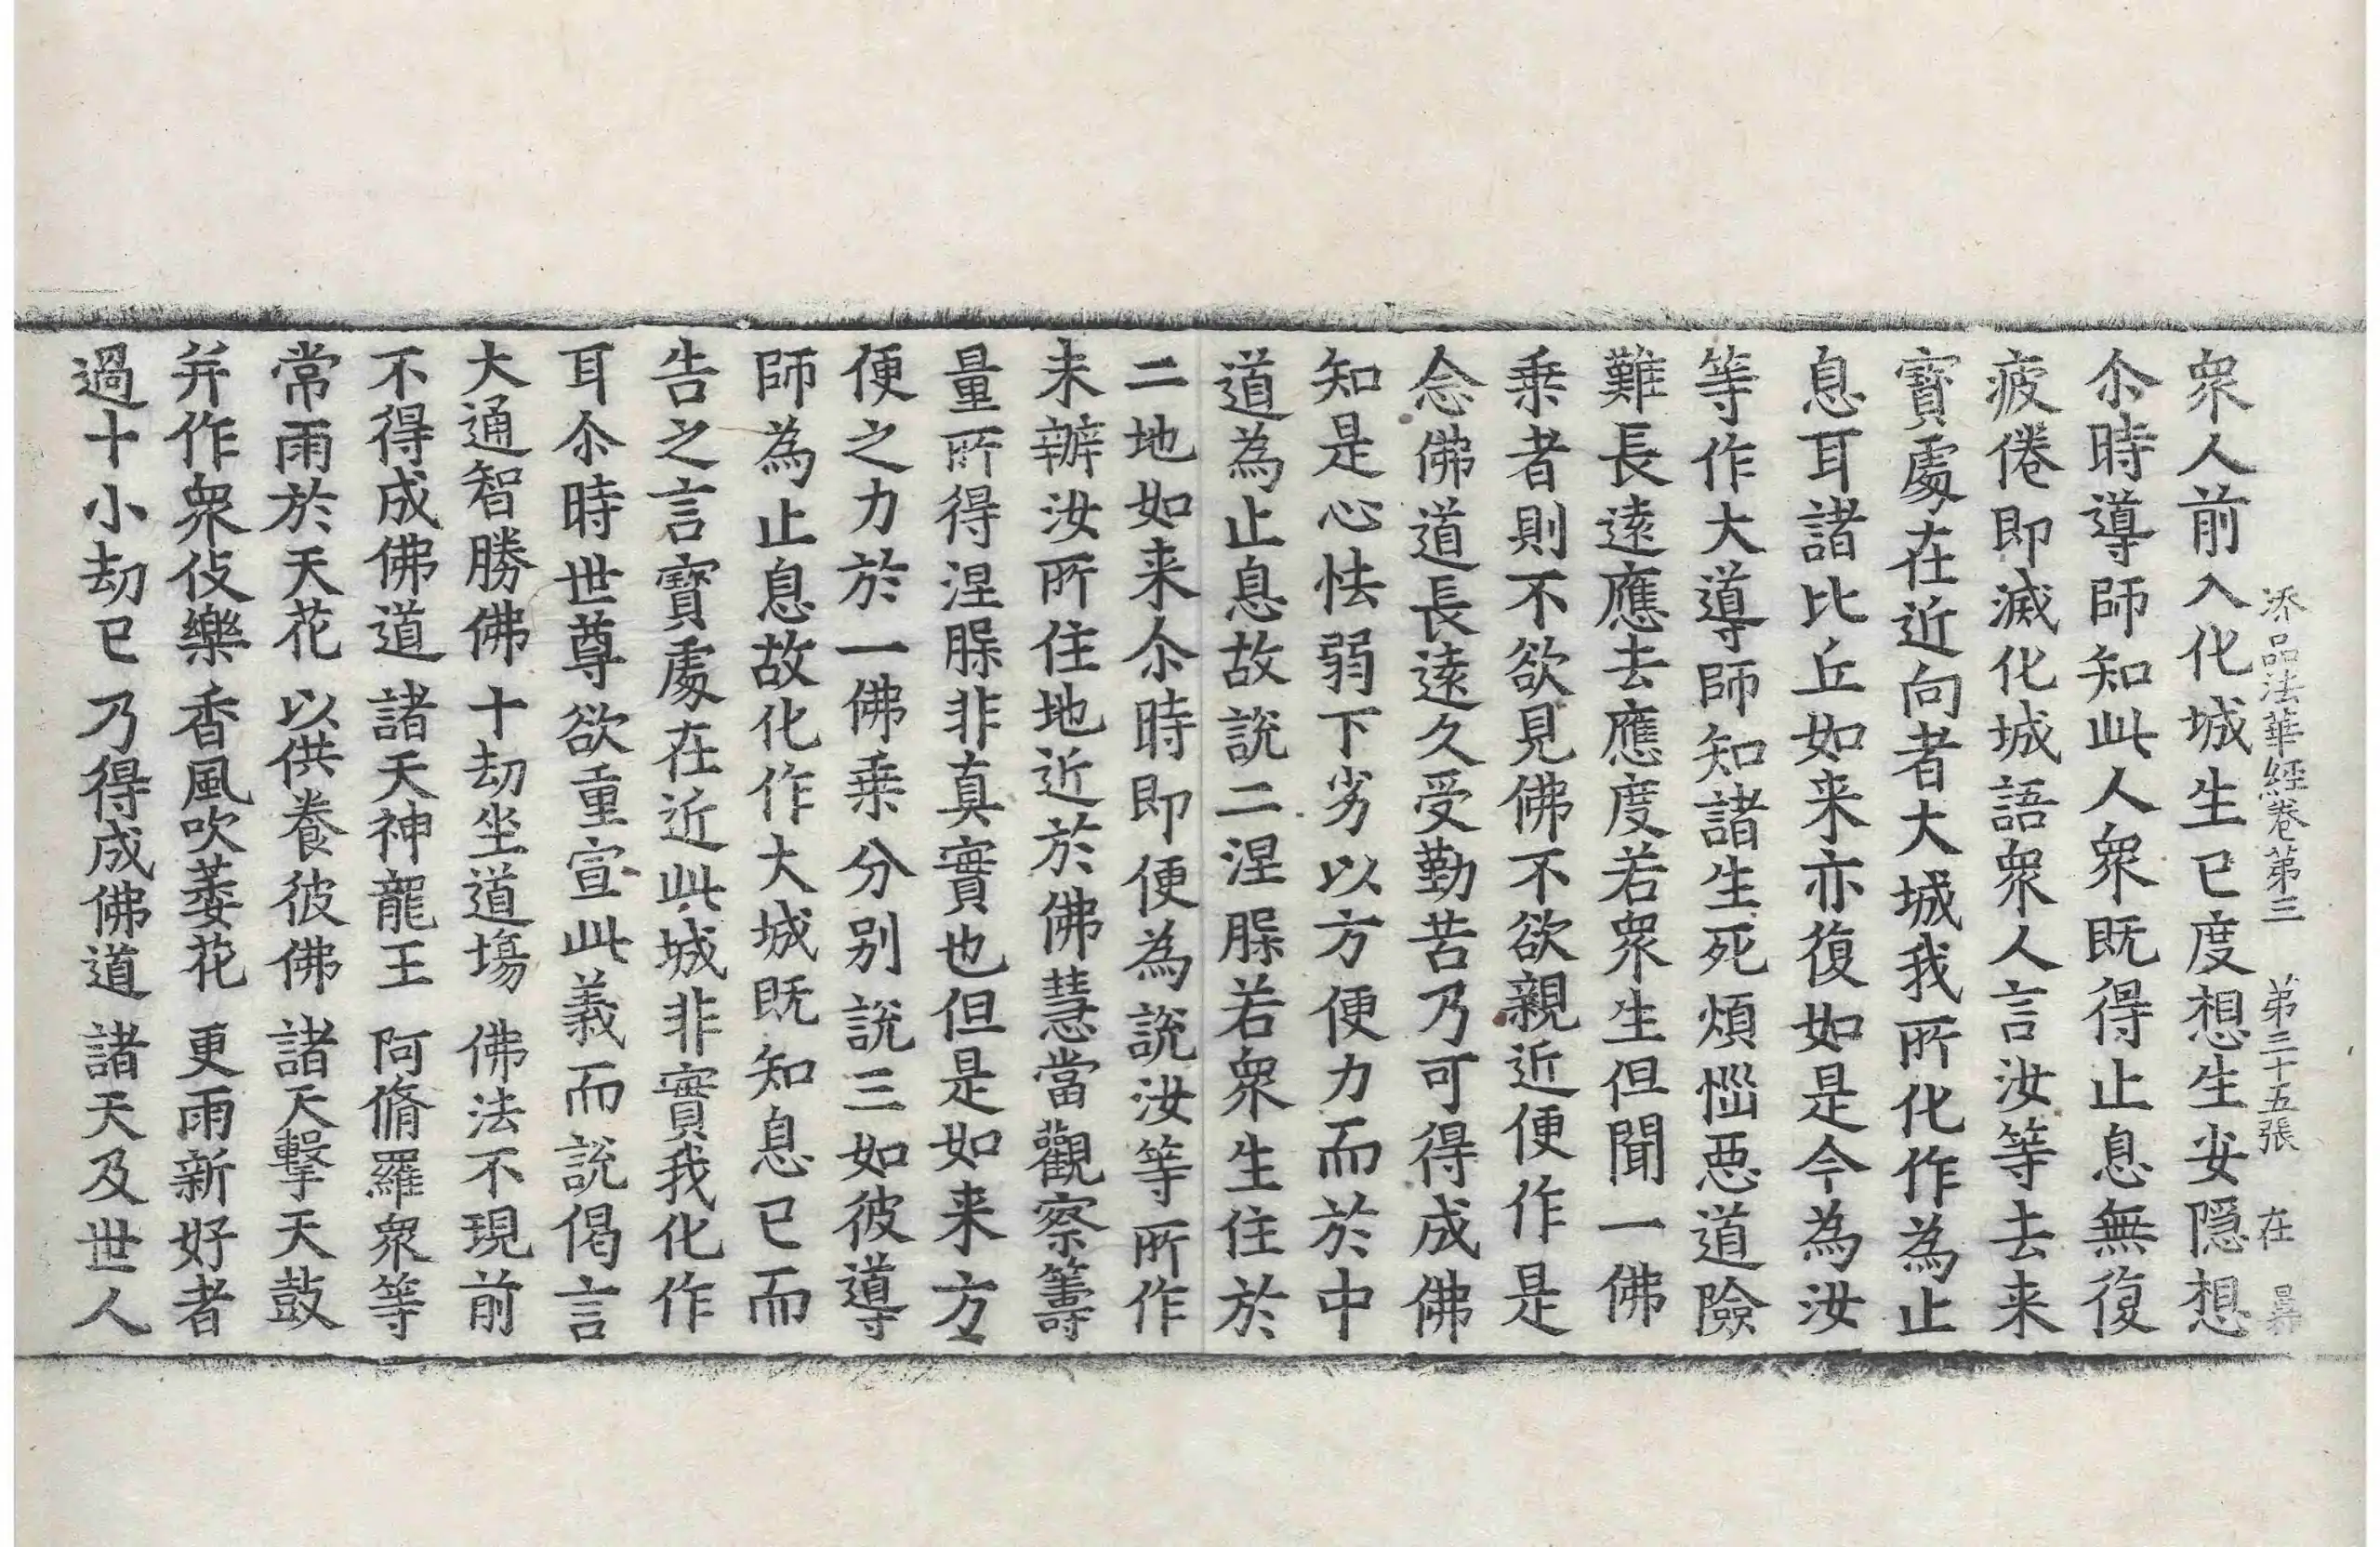 添品法華經卷第三　第三十五張　在
衆人前入化城生已度想生安隱想
尒時導師知此人衆既得止息無復
疲倦即滅化城語衆人言汝等去来
寶處在近向者大城我所化作為止
息耳諸比丘如来亦復如是今為汝
等作大導師知諸生死煩惱惡道險
難長逺應去應度若衆生但聞一佛
乗者則不欲見佛不欲親近便作是
念佛道長逺久受勤苦乃可得成佛
知是心怯弱下劣以方便力而於中
道為止息故說二涅槃若衆生住於
二地如来尒時即便為說汝等所作
未辦汝所住地近於佛慧當觀察籌
量所得涅槃非真實也但是如来方
便之力於一佛乗分别說三如彼導
師為止息故化作大城既知息已而
告之言寶處在近此城非實我化作
耳尒時世尊欲重宣此義而說偈言
大通智勝佛　十劫坐道場　佛法不現前
不得成佛道　諸天神龍王　阿脩羅衆等
常雨於天花　以供養彼佛　諸天擊天鼓
并作衆伎樂　香風吹萎花　更雨新好者
過十小劫已　乃得成佛道　諸天及世人